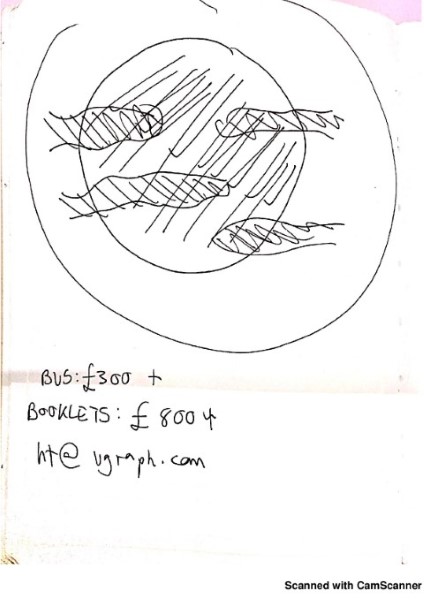 BUS: £300 +
BOOKLETS: £ 800 +
ht@ vgraph.com
Scanned with CamScanner